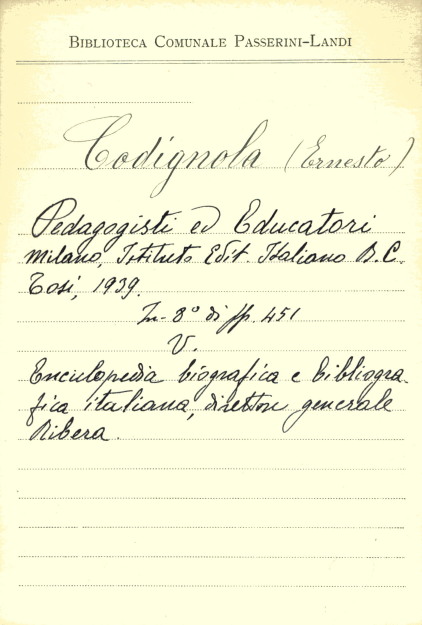 BIBLIOTECA COMUNALE PASSERINI-LANDI
Codignola (Ernesto)
Pedagogisti ed Educatori
Milano, Istituto Edit. Italiano B. C.
Tosi, 1939.
In-8° di pp. 451
V.
Enciclopedia biografica e bibliogra-
fica italiana, direttore generale
Ribera.